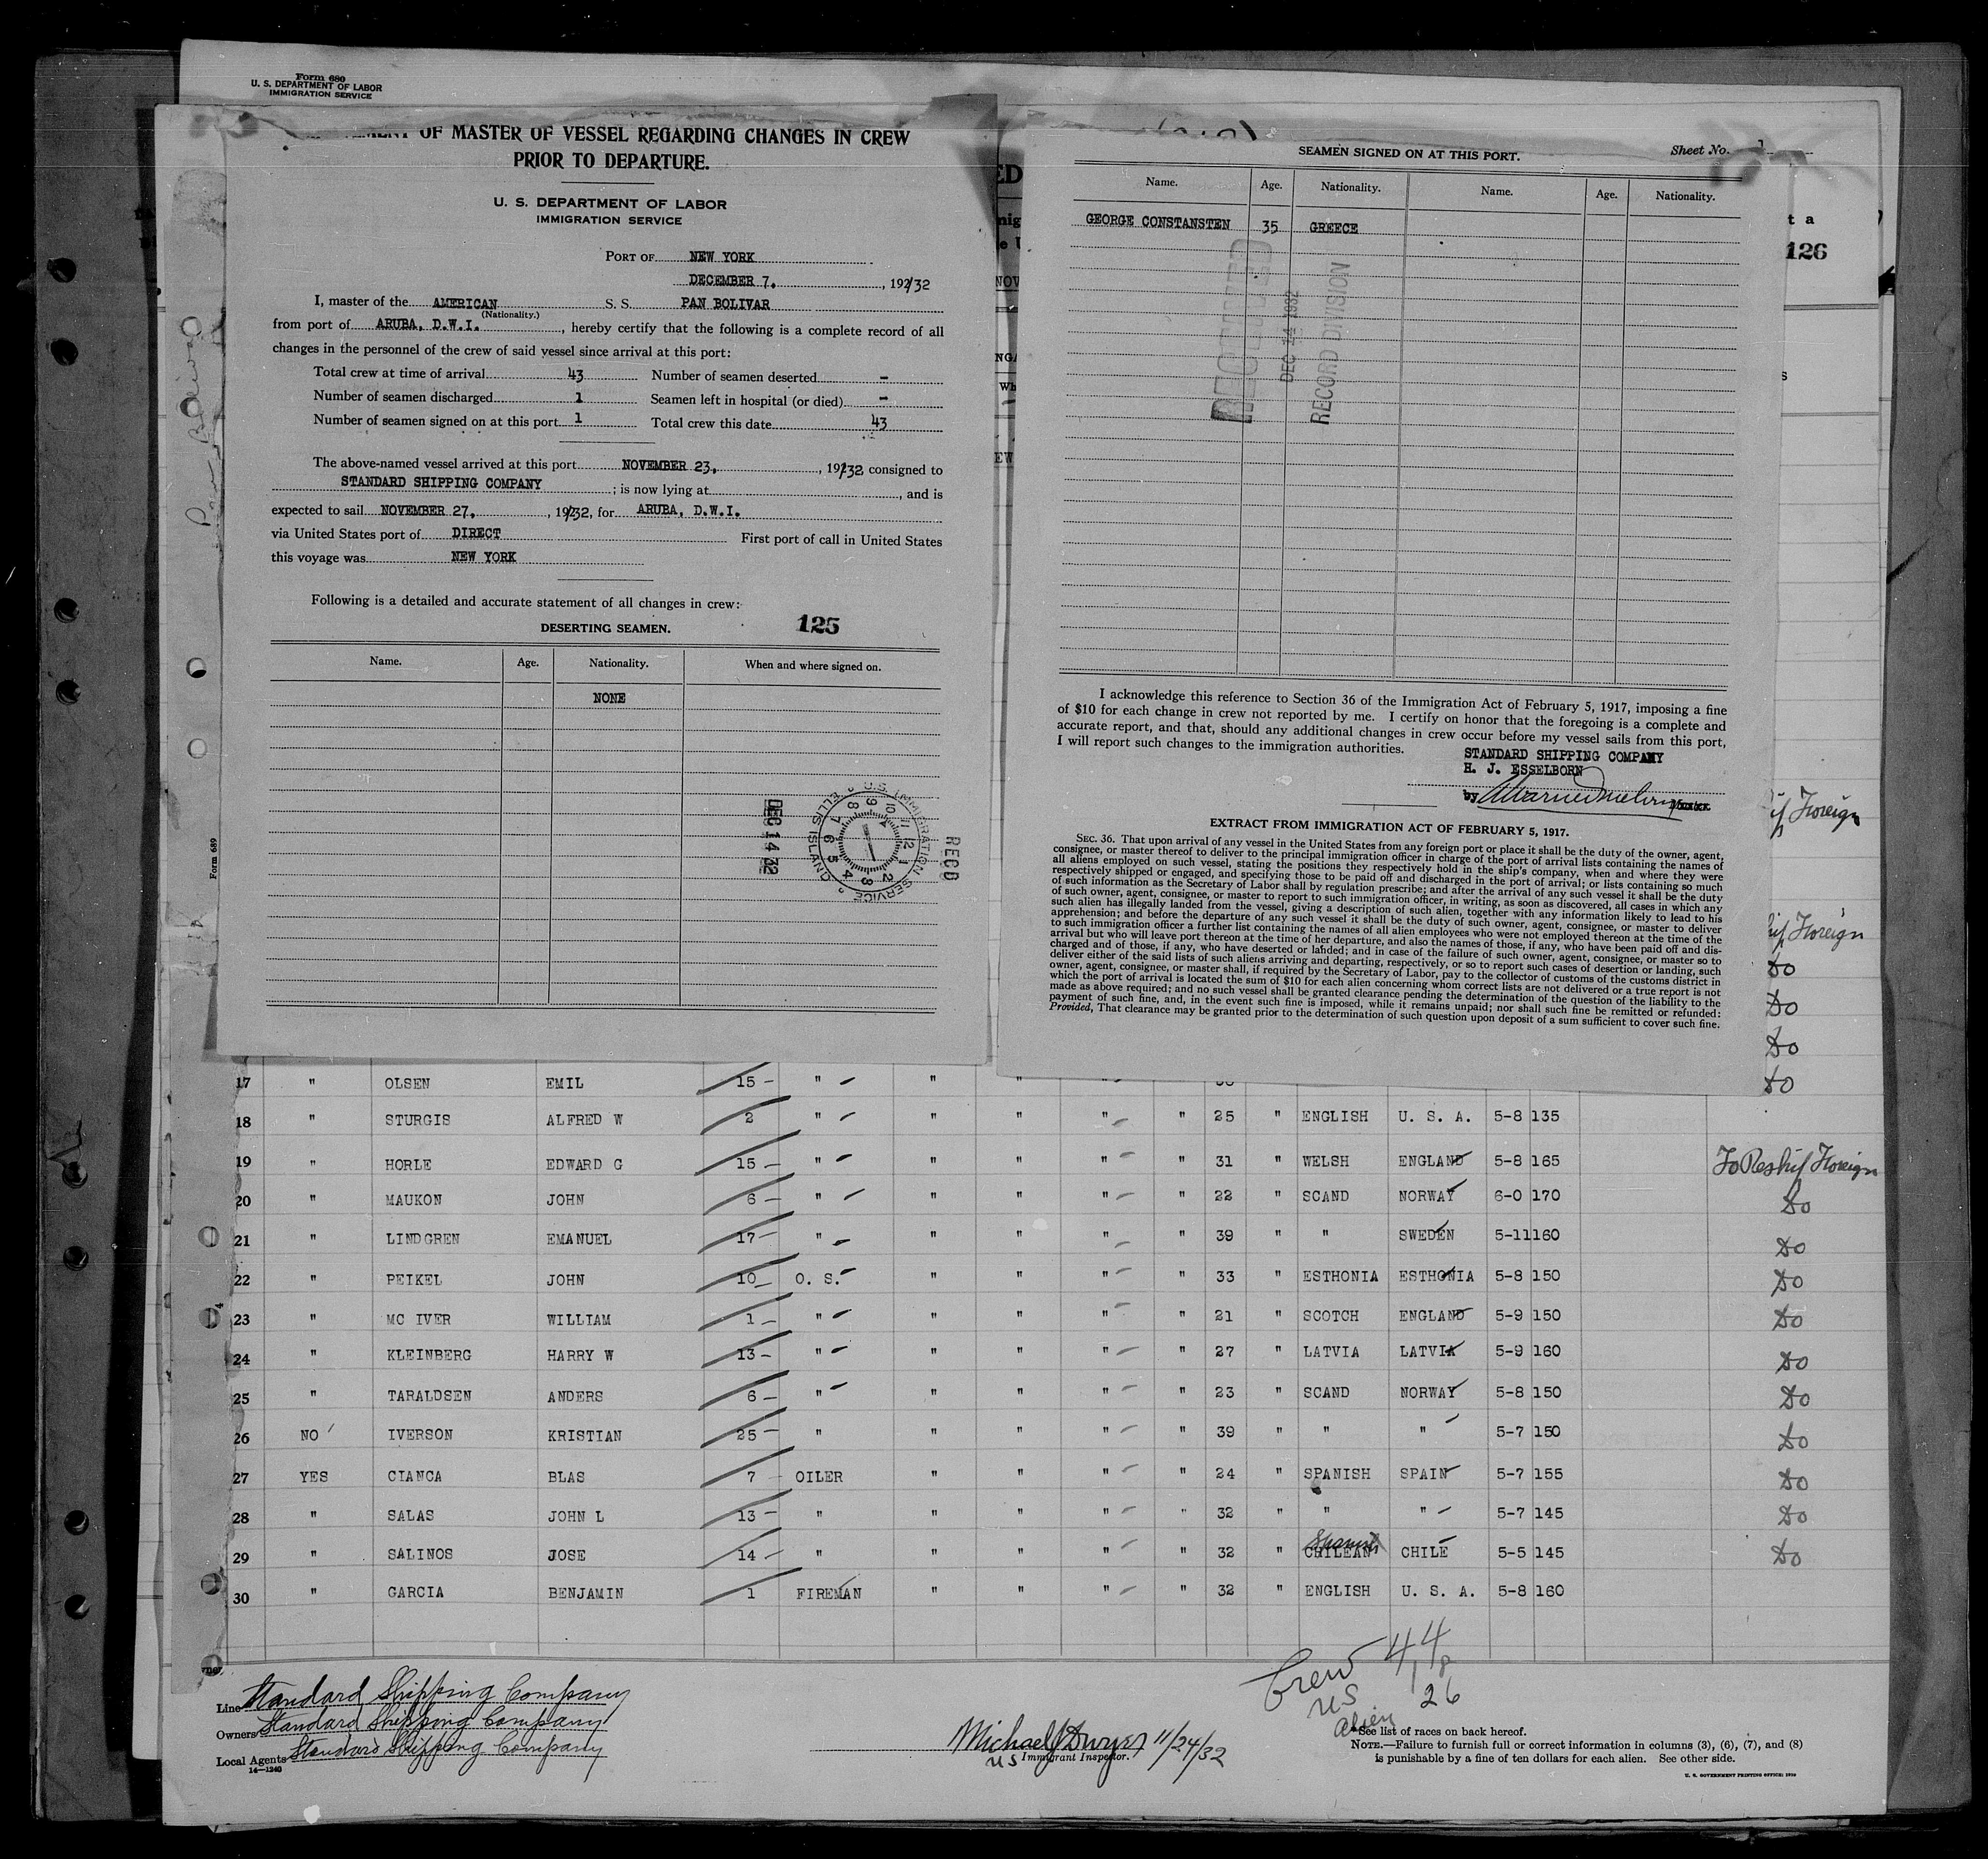 Form 680
U. S. DEPARTMENT OF LABOR
IMMIGRATION SERVICE
OF MASTER OF VESSEL REGARDING CHANGES IN CREW
PRIOR TO DEPARTURE.
U. S. DEPARTMENT OF LABOR
IMMIGRATION SERVICE
PORT OF NEW YORK
DECEMBER 7, , 192/32
I, master of the AMERICAN S. S. PAN BOLIVAR
(Nationality.)
from port of ARUBA, D.W.I. , hereby certify that the following is a complete record of all
changes in the personnel of the crew of said vessel since arrival at this port:
Total crew at time of arrival 43 Number of seamen deserted -
Number of seamen discharged 1 Seamen left in hospital (or died) -
Number of seamen signed on at this port 1 Total crew this date 43
The above-named vessel arrived at this port NOVEMBER 23, , 19232 consigned to
STANDARD SHIPPING COMPANY ; is now lying at , and is
expected to sail NOVEMBER 27, , 19232, for ARUBA, D.W.I.
via United States port of DIRECT First port of call in United States
this voyage was NEW YORK
Following is a detailed and accurate statement of all changes in crew:
DESERTING SEAMEN. 125
Name. Age. Nationality. When and where signed on.
NONE
DEC 14 32
U.S. IMMIGRATION SERVICE ELLIS ISLAND
REC'D
Form 689
Pan Bolivar
SEAMEN SIGNED ON AT THIS PORT. Sheet No. 1
Name. Age. Nationality. Name. Age. Nationality.
GEORGE CONSTANSTEN 35 GREECE
RECEIVED
DEC 14 1932
RECORD DIVISION
I acknowledge this reference to Section 36 of the Immigration Act of February 5, 1917, imposing a fine
of $10 for each change in crew not reported by me. I certify on honor that the foregoing is a complete and
accurate report, and that, should any additional changes in crew occur before my vessel sails from this port,
I will report such changes to the immigration authorities.
STANDARD SHIPPING COMPANY
H. J. ESSELBORN
by Master.
EXTRACT FROM IMMIGRATION ACT OF FEBRUARY 5, 1917.
SEC. 36. That upon arrival of any vessel in the United States from any foreign port or place it shall be the duty of the owner, agent,
consignee, or master thereof to deliver to the principal immigration officer in charge of the port of arrival lists containing the names of
all aliens employed on such vessel, stating the positions they respectively hold in the ship's company, when and where they were
respectively shipped or engaged, and specifying those to be paid off and discharged in the port of arrival; or lists containing so much
of such information as the Secretary of Labor shall by regulation prescribe; and after the arrival of any such vessel it shall be the duty
of such owner, agent, consignee, or master to report to such immigration officer, in writing, as soon as discovered, all cases in which any
such alien has illegally landed from the vessel, giving a description of such alien, together with any information likely to lead to his
apprehension; and before the departure of any such vessel it shall be the duty of such owner, agent, consignee, or master to deliver
to such immigration officer a further list containing the names of all alien employees who were not employed thereon at the time of the
arrival but who will leave port thereon at the time of her departure, and also the names of those, if any, who have been paid off and dis-
charged and of those, if any, who have deserted or landed; and in case of the failure of such owner, agent, consignee, or master so to
deliver either of the said lists of such aliens arriving and departing, respectively, or so to report such cases of desertion or landing, such
owner, agent, consignee, or master shall, if required by the Secretary of Labor, pay to the collector of customs of the customs district in
which the port of arrival is located the sum of $10 for each alien concerning whom correct lists are not delivered or a true report is not
made as above required; and no such vessel shall be granted clearance pending the determination of the question of the liability to the
payment of such fine, and, in the event such fine is imposed, while it remains unpaid; nor shall such fine be remitted or refunded:
Provided, That clearance may be granted prior to the determination of such question upon deposit of a sum sufficient to cover such fine.
t a
126
Foreign
Foreign
do
do
do
17 " OLSEN EMIL 15 " " " " do
18 " STURGIS ALFRED W 2 " " " " " 25 " ENGLISH U. S. A. 5-8 135
19 " HORLE EDWARD G 15 " " " " " 31 " WELSH ENGLAND 5-8 165 To Reship Foreign
20 " MAUKON JOHN 6 " " " " " 22 " SCAND NORWAY 6-0 170 do
21 " LINDGREN EMANUEL 17 " " " " " 39 " " SWEDEN 5-11 160 do
22 " PEIKEL JOHN 10 O. S. " " " " 33 " ESTHONIA ESTHONIA 5-8 150 do
23 " MC IVER WILLIAM 1 " " " " " 21 " SCOTCH ENGLAND 5-9 150 do
24 " KLEINBERG HARRY W 13 " " " " " 27 " LATVIA LATVIA 5-9 160 do
25 " TARALDSEN ANDERS 6 " " " " " 23 " SCAND NORWAY 5-8 150 do
26 NO IVERSON KRISTIAN 25 " " " " " 39 " " " 5-7 150 do
27 YES CIANCA BLAS 7 OILER " " " " 24 " SPANISH SPAIN 5-7 155 do
28 " SALAS JOHN L 13 " " " " " 32 " " " 5-7 145 do
29 " SALINOS JOSE 14 " " " " " 32 " Spanish CHILEAN CHILE 5-5 145 do
30 " GARCIA BENJAMIN 1 FIREMAN " " " " 32 " ENGLISH U. S. A. 5-8 160
Crew 44
US 18
Alien 26
Line Standard Shipping Company
Owners Standard Shipping Company
Local Agents Standard Shipping Company
14—1240
Michael J Dwyer 11/24/32
US Immigrant Inspector.
*See list of races on back hereof.
NOTE.—Failure to furnish full or correct information in columns (3), (6), (7), and (8)
is punishable by a fine of ten dollars for each alien. See other side.
U. S. GOVERNMENT PRINTING OFFICE: 1930